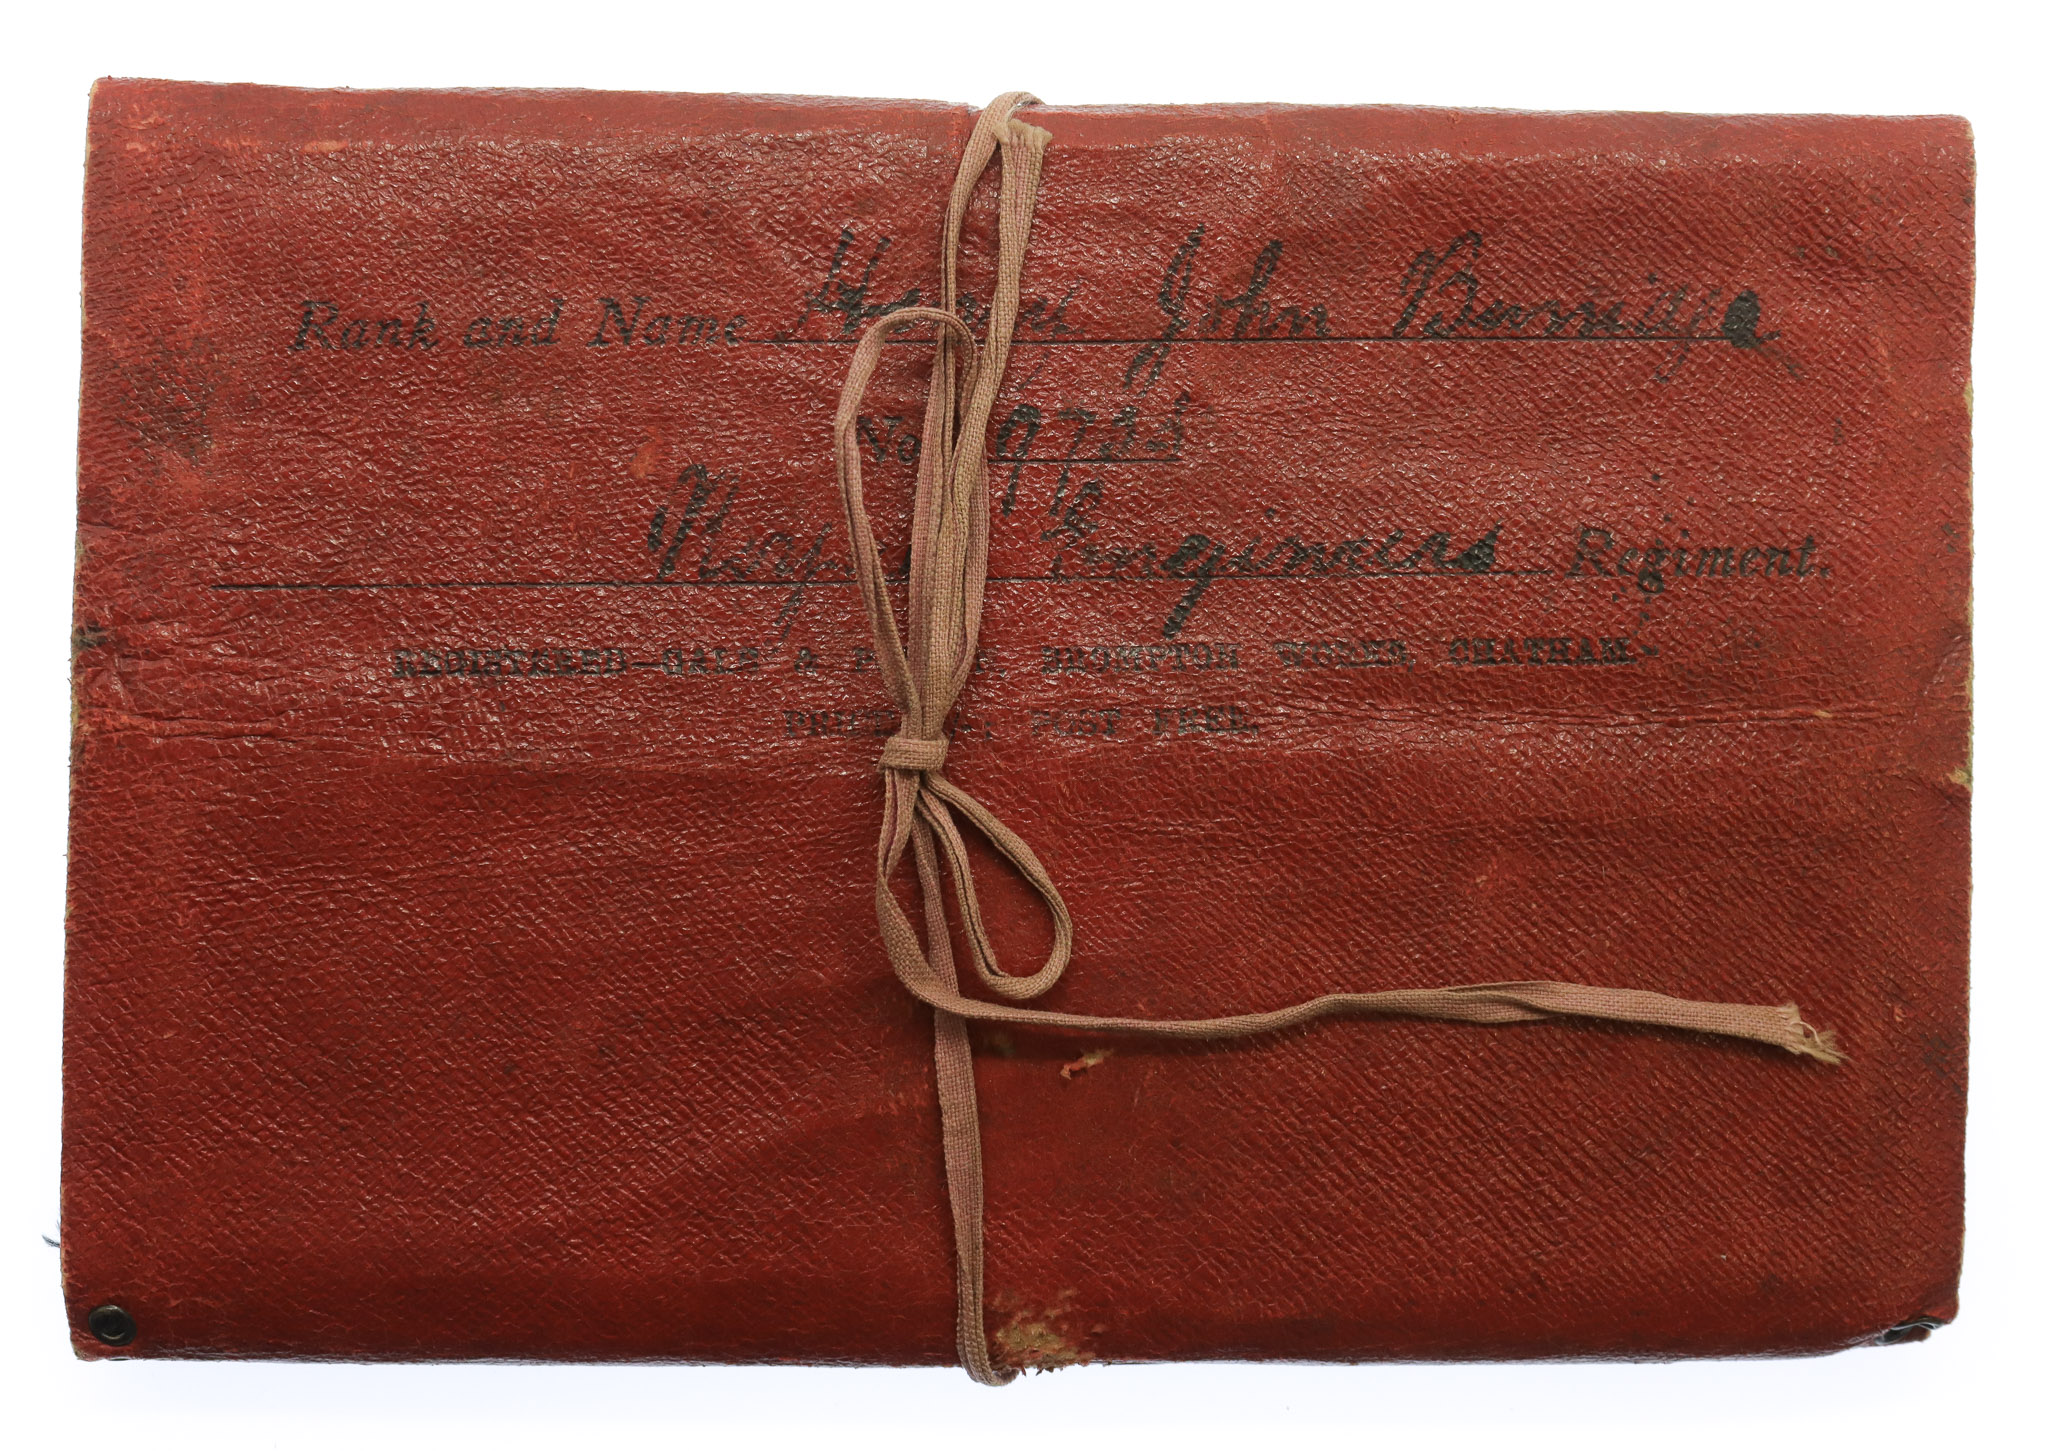 Rank and Name Henry John Burridge
No 9735
Royal Engineers Regiment.
REGISTERED—GALE & , BROMPTON WORKS, CHATHAM.
POST FREE.